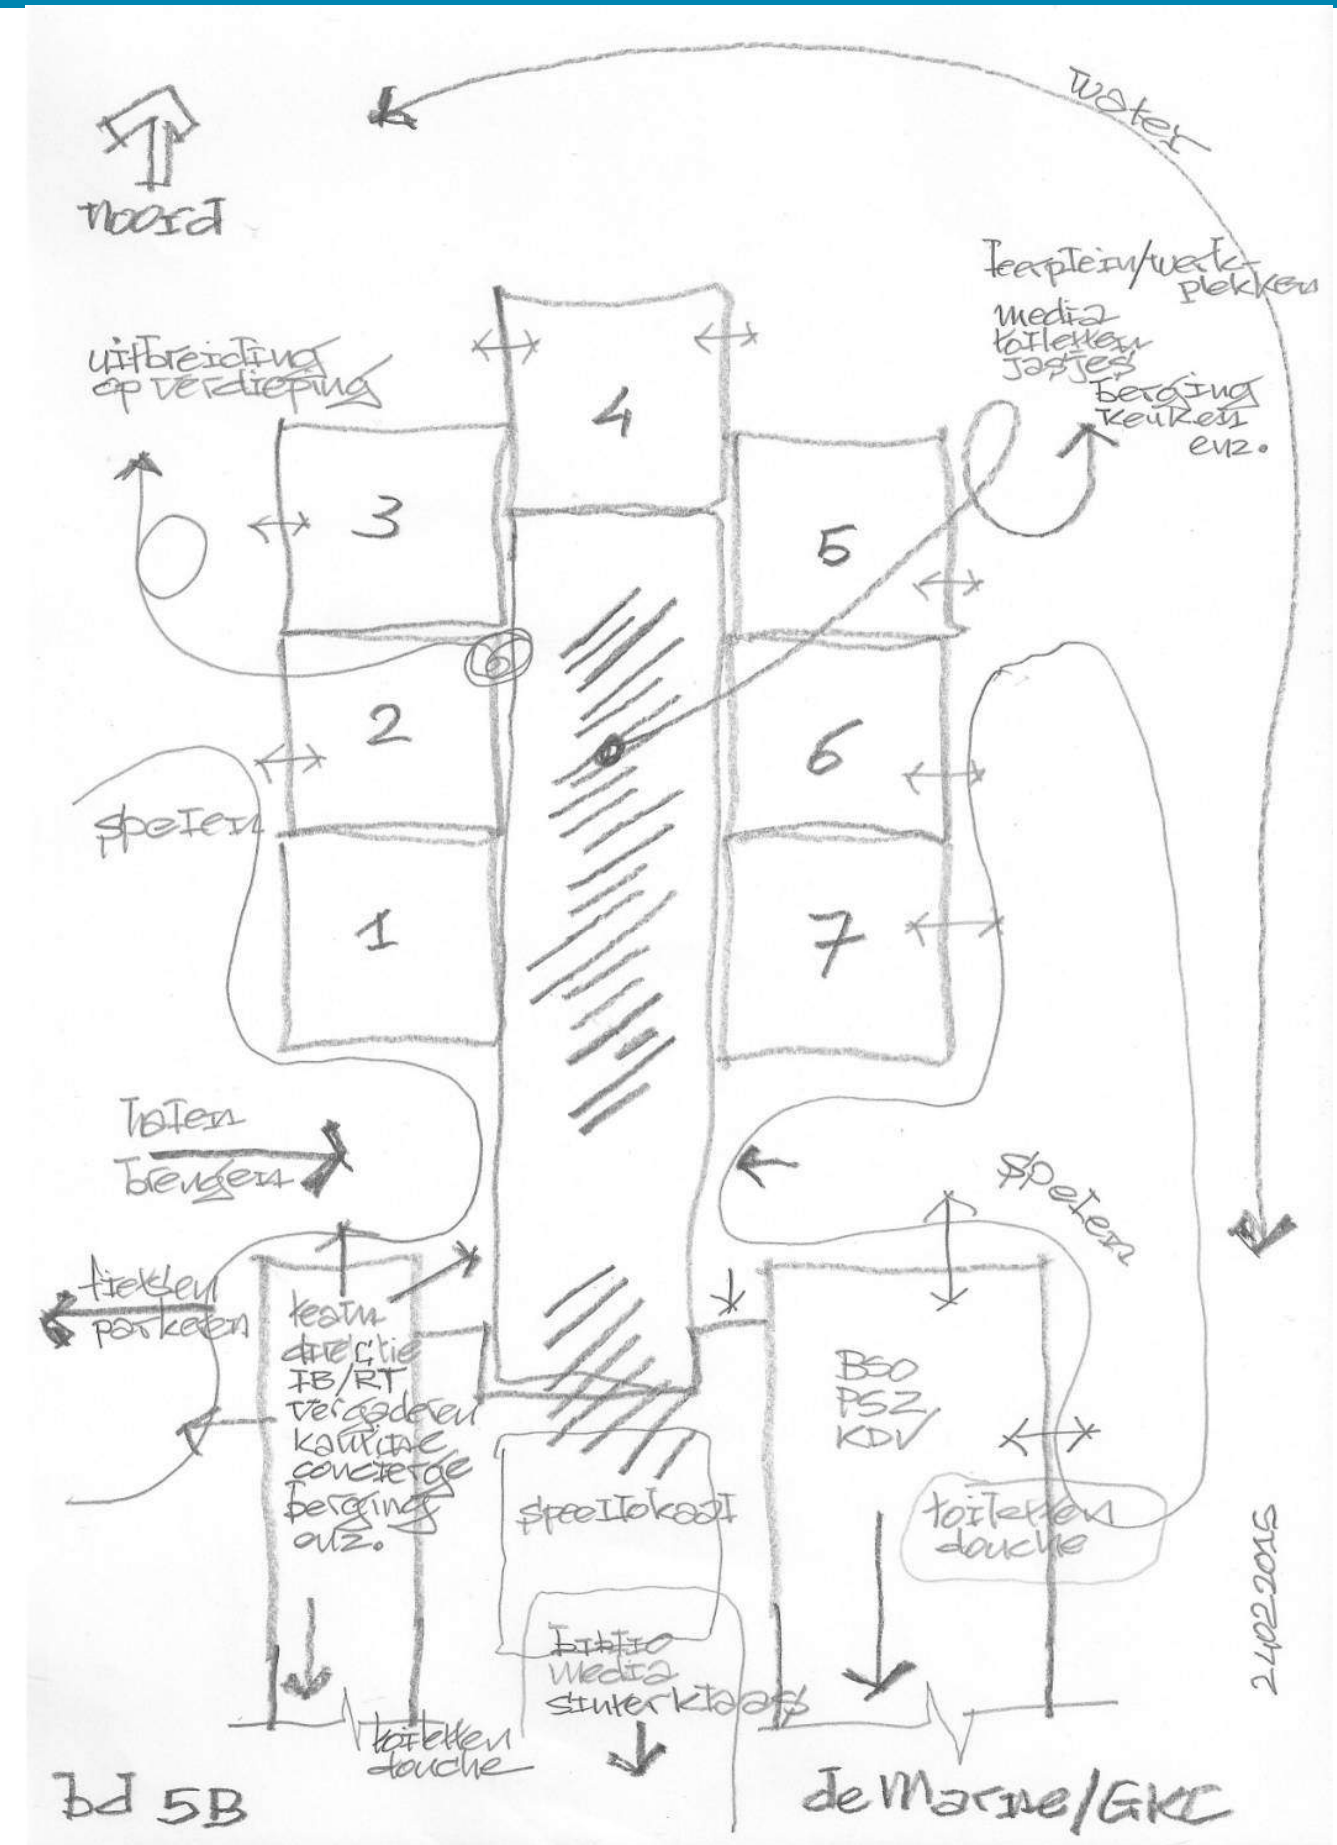 water
noord
leerplein/werk-
plekken
media
toiletten
jasjes
berging
keuken
enz.
uitbreiding
op verdieping
4
3
5
2
6
spelen
1
7
halen
brengen
spelen
fietsen
parkeren
team
directie
IB/RT
vergaderen
kantine
concierge
berging
enz.
BSO
PSZ
KDV
speellokaal
toiletten
douche
biblio
media
sinterklaas
toiletten
douche
24022015
bd 5B
de Marne/GKC